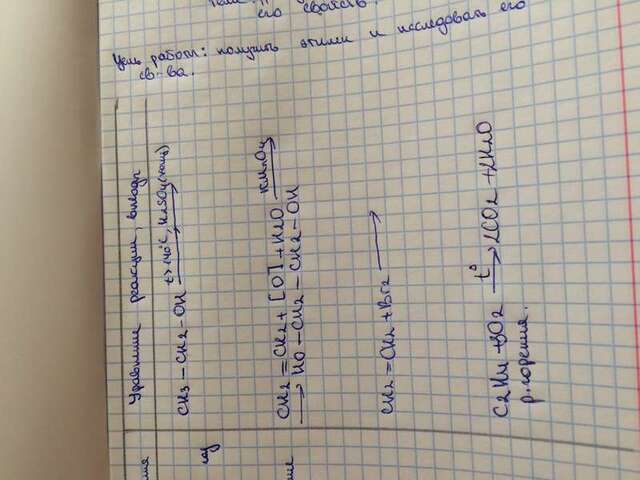 его свойств.
Цель работы: получить этилен и исследовать его
св-ва.
Уравнение реакции, выводы
CH3-CH2-OH t>140°C, H2SO4(конц)→
CH2=CH2+[O]+H2O KMnO4→
→HO-CH2-CH2-OH
CH2=CH2+Br2→
C2H4+3O2 t°→2CO2+2H2O
р.горения.